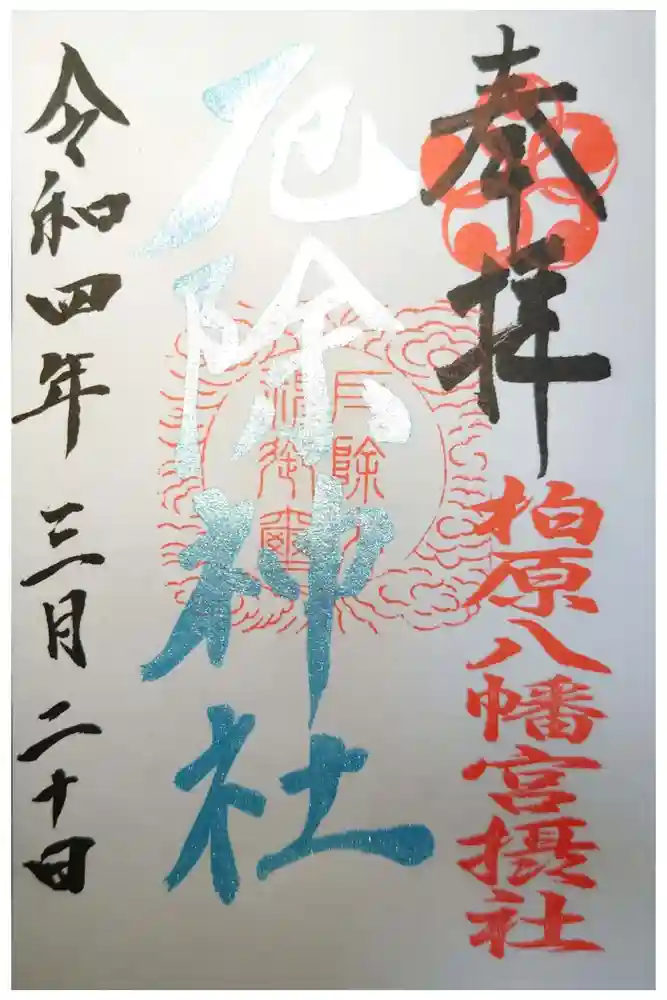 奉拝
柏原八幡宮摂社
厄除神社
令和四年 三月 二十日